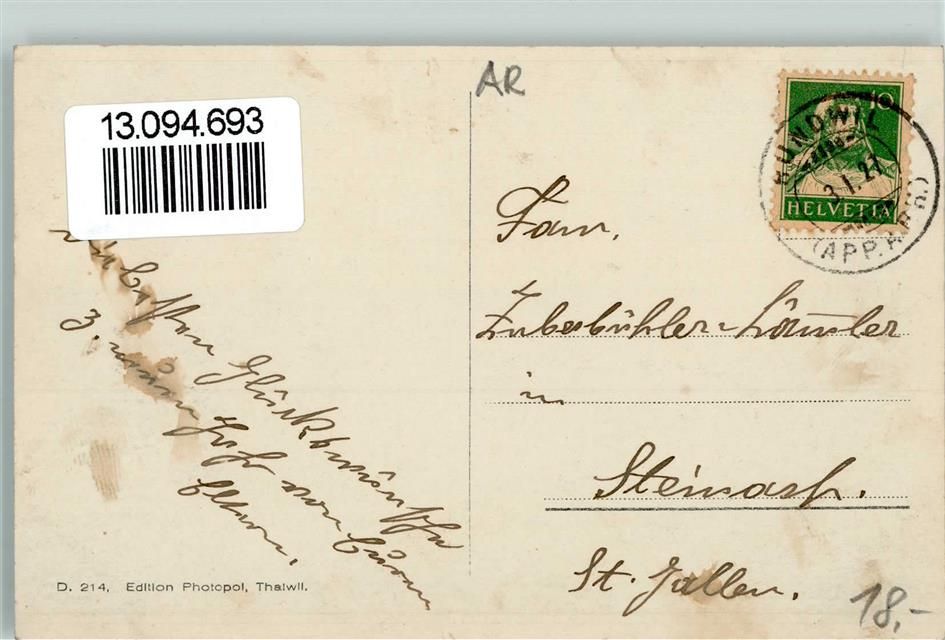 13.094.693
AR
10
HUNDWIL
3.I.27
(APP. A.RH.)
HELVETIA
Fam.
Zuberbühler-
in
Steinach.
St. Gallen.
Glückwünsche
z. neuen Jahr von Euern
Eltern.
D. 214, Edition Photopol, Thalwil.
18,-